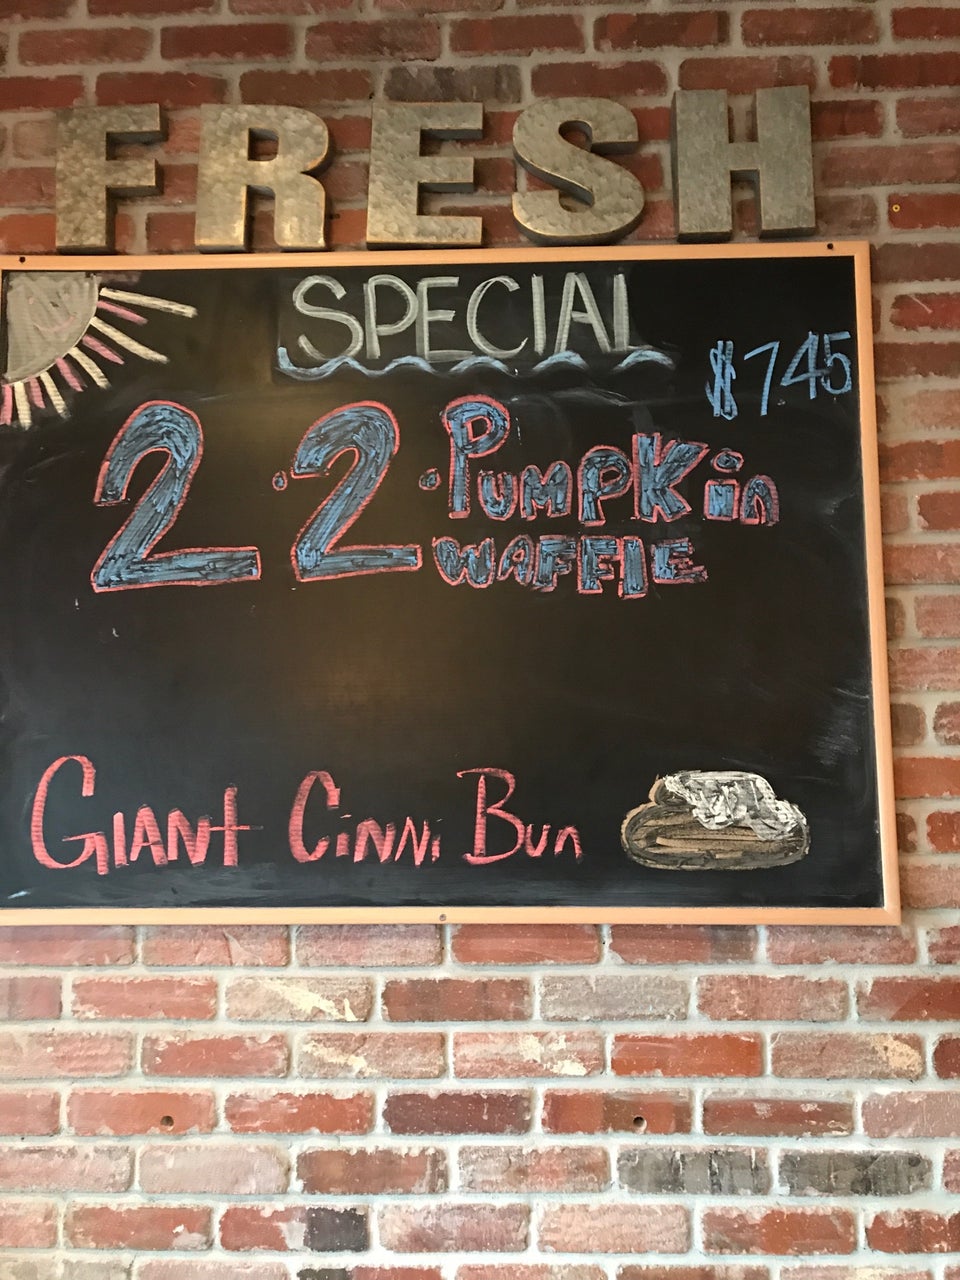 FRESH
SPECIAL
$7.45
2.2.Pumpkin
WAFFlE
GIANT CiNNi Bun